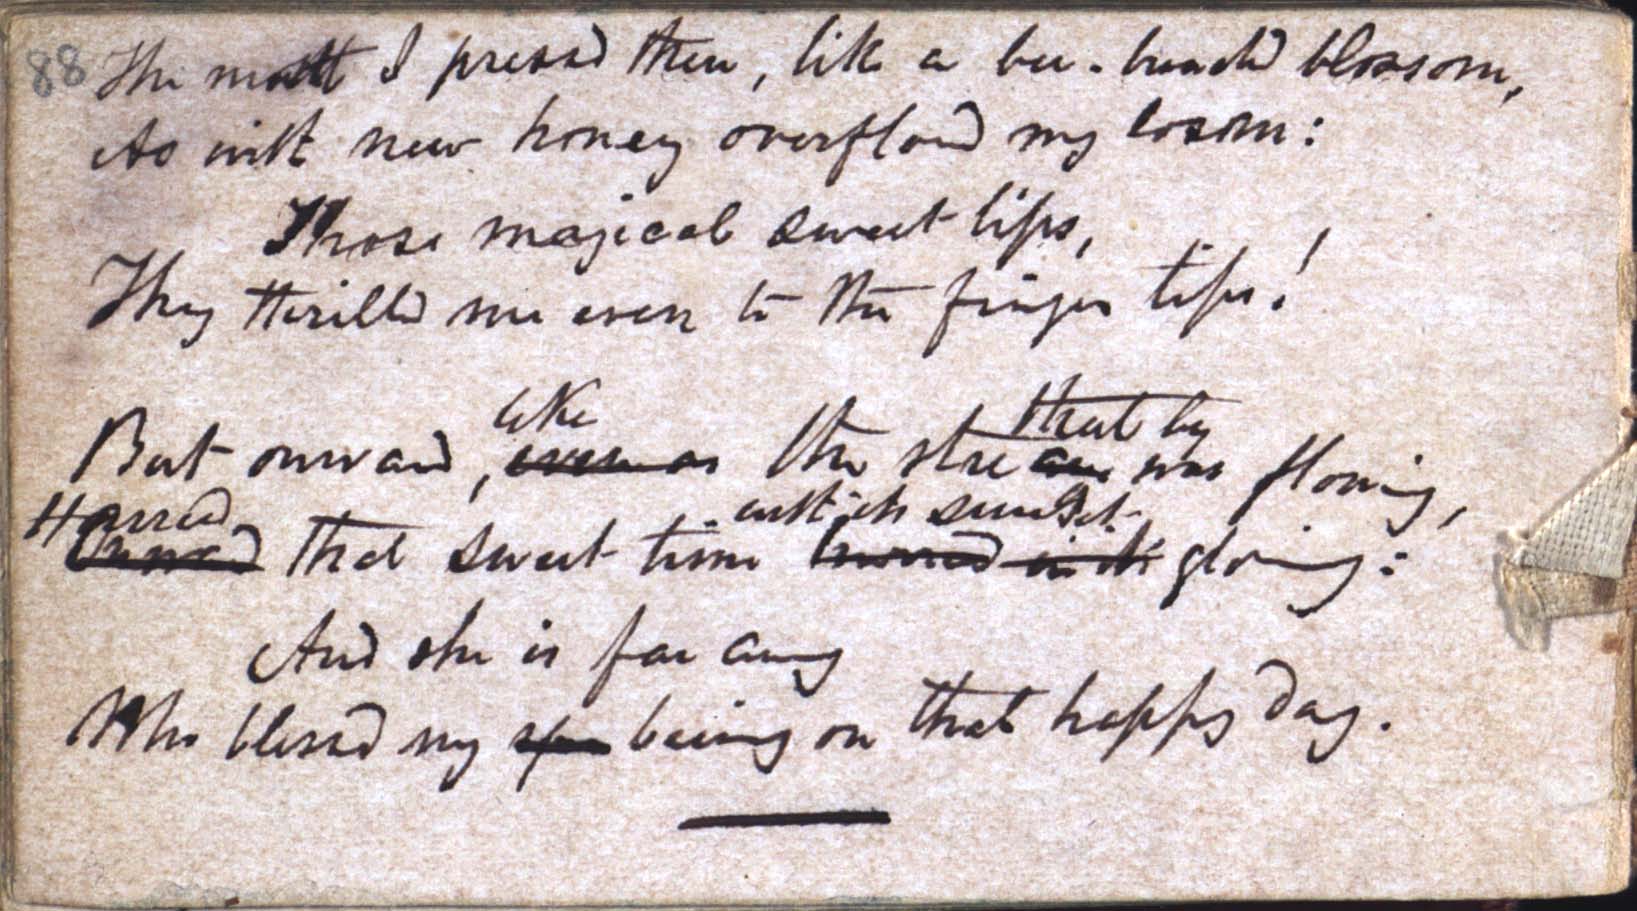 88 The mouth I press'd then, like a blossom,
As with new honey overflow'd my bosom:
Those magical sweet lips,
They thrill'd me even to the finger tips!
like that by
But onward, even as the stream was flowing,
with its sunset
that sweet time glowing:
And she is far away
Who bless'd my being on that happy day.